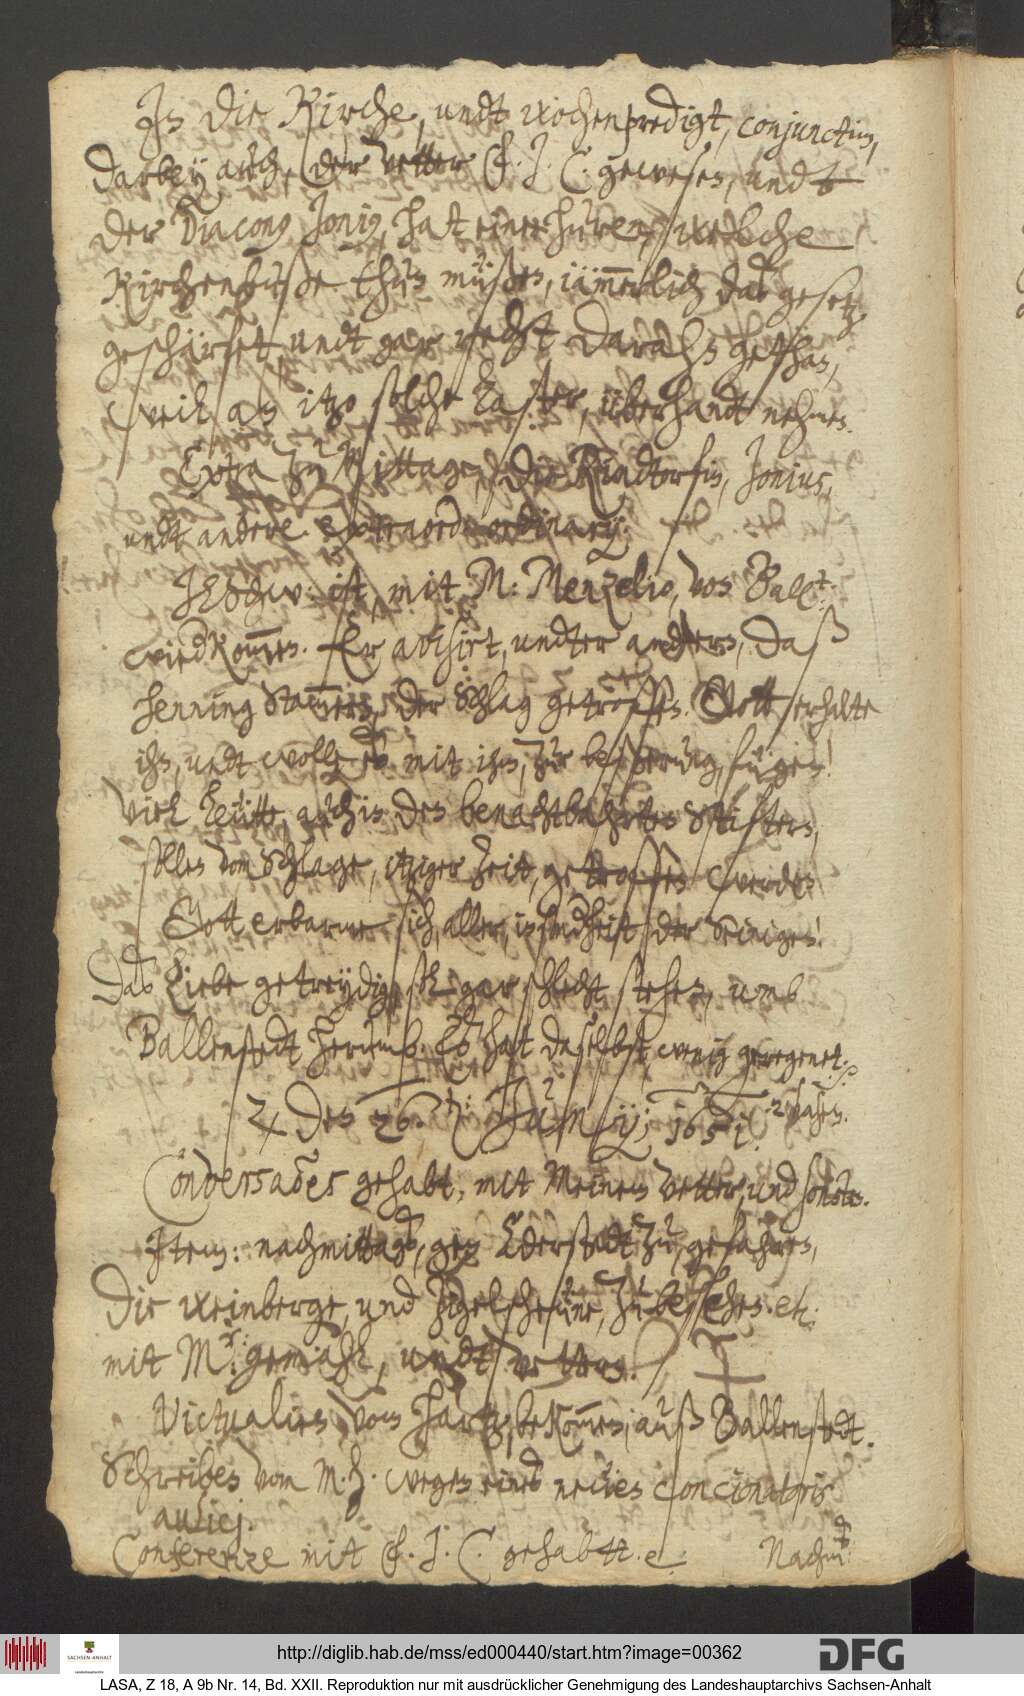 In die Kirche, undt wochenpredigt, conjunctim,
darbey auch, der Vetter C. J. C. gewesen, undt
der Diaconus Jonius, hat einer huren, welche
Kirchenbuße thun müßen, iämmerlich das gesetz
geschärfet, undt gar recht daran gethan,
weil an itzo solche Laster, überhandt nehmen.
Extra zu Mittage, die Rindtorfin, Jonius,
undt andere extraord: ordinary.
ist, mit M: Menzelio, von Ball:
wiedkommen. Er avisirt, undter anders, daß
Henning Stammern, der Schlag getroffen. Gott erhalte
ihn, undt wolle es mit ihm, zur beßerung, fügen!
Viel leütte, auch in den benachtbahrten Stiftern,
sollen vom Schlage, itziger Zeit, getroffen werden
Gott erbarme sich, aller, insonderheit der Seinigen!
Das liebe getreydig, soll gar schlecht stehen, umb
Ballenstedt herumb. Es hat daselbst, wenig geregenet.
♃ den 26. Junij; 1651. 2 hasen.
Conversaōes gehabt, mit Meinem Vetter, und sonsten.
Item: nachmittags, gen Ederstedt zu, gefahren,
Die weinberge, und Zigelscheüne, zu besehen. etc:
mit Mr: gemahl, undt vettern.
Victualien vom Hartz, bekommen, auß Ballenstedt.
Schreiben vom M. H. wegen eines neüen Concionatoris
aulicj.
Conferenze mit C. J. C. gehabtt. e Nachm:
http://diglib.hab.de/mss/ed000440/start.htm?image=00362
SACHSEN-ANHALT
DFG
LASA, Z 18, A 9b Nr. 14, Bd. XXII. Reproduktion nur mit ausdrücklicher Genehmigung des Landeshauptarchivs Sachsen-Anhalt